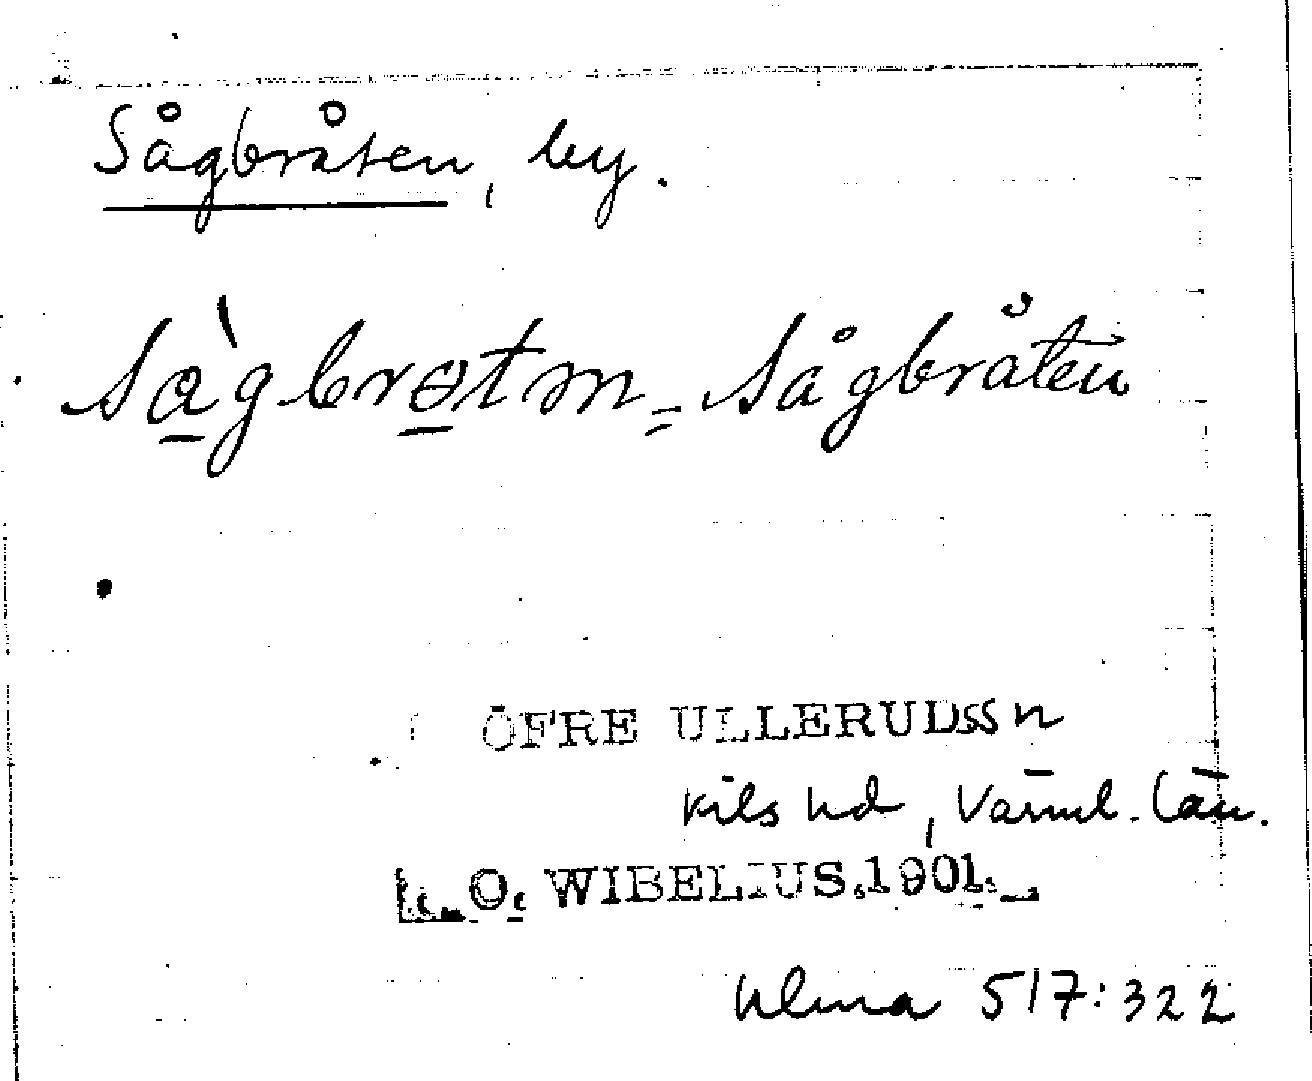 Sågbråten, by.
sàgbrɵtn = Sågbråten
ÖFRE ULLERUDssn
Kils hd, Värml. län.
O. WIBELIUS.1901.
Ulma 517:322